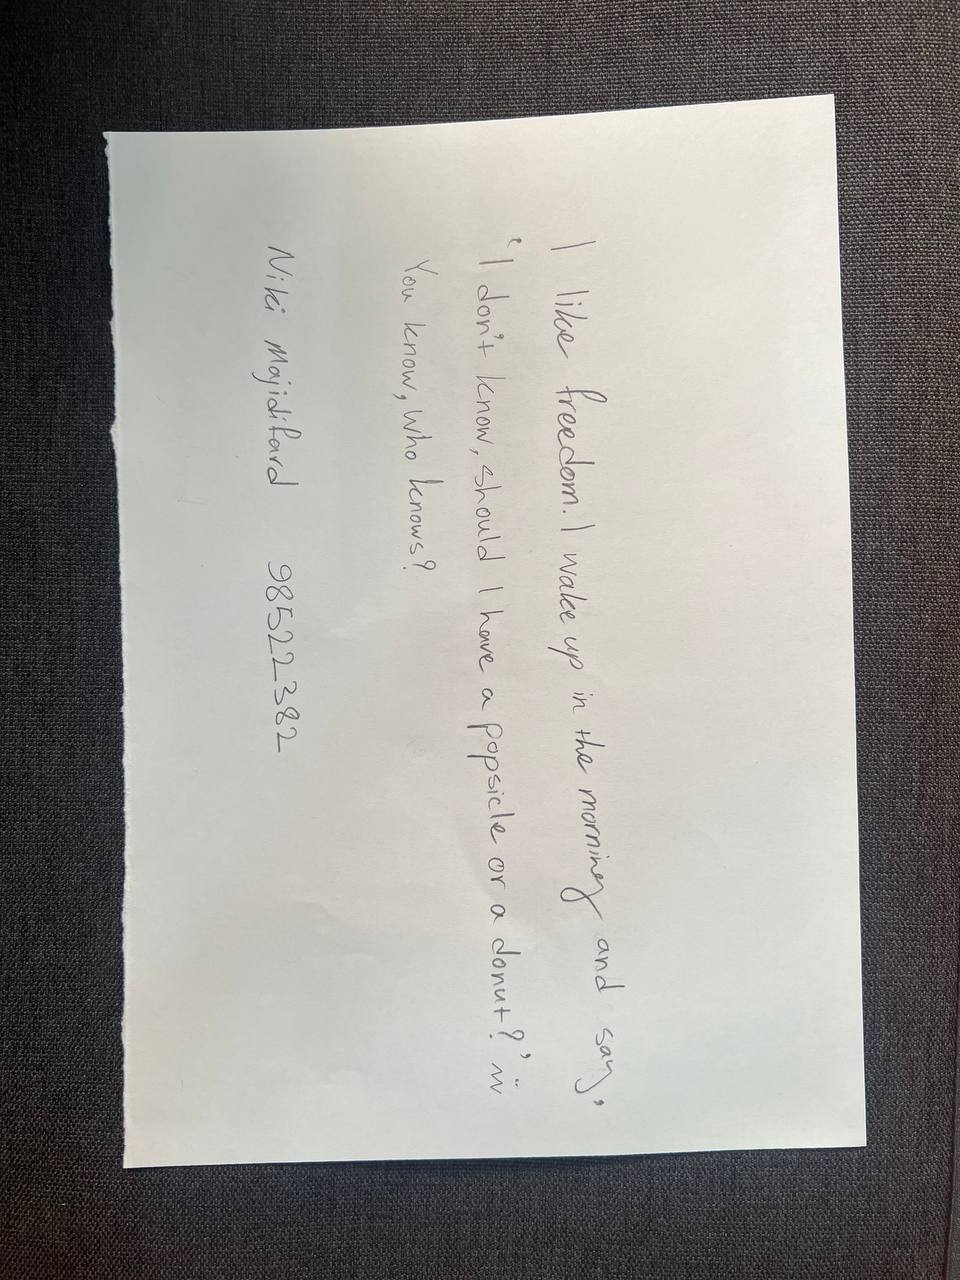 I like freedom. I wake up in the morning and say,
'I don't know, should I have a popsicle or a donut?'
You know, who knows?
Niki Majidifard 98522382